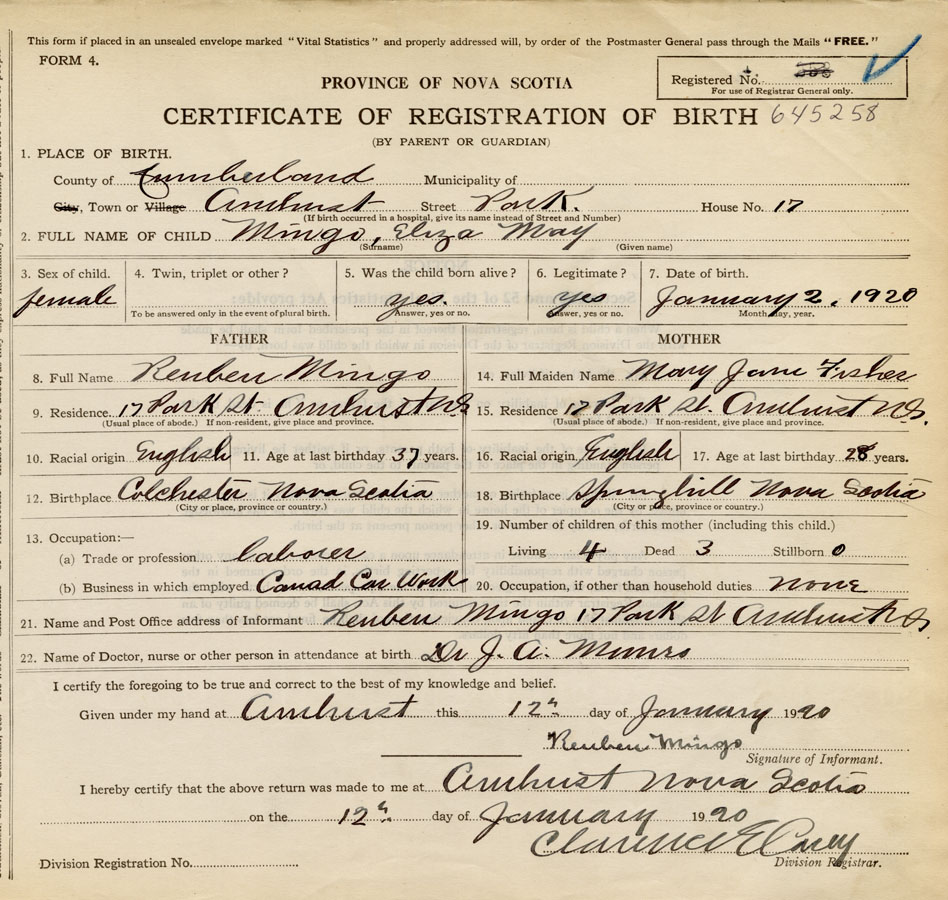 This form if placed in an unsealed envelope marked "Vital Statistics" and properly addressed will, by order of the Postmaster General pass through the Mails "FREE."
FORM 4.
Registered No.
For use of Registrar General only.
PROVINCE OF NOVA SCOTIA
CERTIFICATE OF REGISTRATION OF BIRTH 645258
(BY PARENT OR GUARDIAN)
1. PLACE OF BIRTH.
County of Cumberland Municipality of
City, Town or Village Amherst Street Park. House No. 17
(If birth occurred in a hospital, give its name instead of Street and Number)
2. FULL NAME OF CHILD Mingo, Eliza May
(Surname) (Given name)
3. Sex of child. 4. Twin, triplet or other? 5. Was the child born alive? 6. Legitimate? 7. Date of birth.
female yes. yes January 2, 1920
To be answered only in the event of plural birth. Answer, yes or no. Answer, yes or no. Month, day, year.
FATHER MOTHER
8. Full Name Reuben Mingo 14. Full Maiden Name Mary Jane Fisher
9. Residence. 17 Park St. Amherst NS 15. Residence 17 Park St. Amherst NS.
(Usual place of abode.) If non-resident, give place and province. (Usual place of abode.) If non-resident, give place and province.
10. Racial origin English 11. Age at last birthday 37 years. 16. Racial origin English 17. Age at last birthday 28 years.
12. Birthplace Colchester Nova Scotia 18. Birthplace Springhill Nova Scotia
(City or place, province or country.) (City or place, province or country.)
13. Occupation:— 19. Number of children of this mother (including this child.)
(a) Trade or profession laborer Living 4 Dead 3 Stillborn 0
(b) Business in which employed Canad Car Work 20. Occupation, if other than household duties none
21. Name and Post Office address of Informant Reuben Mingo 17 Park St Amherst NS.
22. Name of Doctor, nurse or other person in attendance at birth Dr J. A. Munro
I certify the foregoing to be true and correct to the best of my knowledge and belief.
Given under my hand at Amherst this 12th day of January 1920
Reuben Mingo
Signature of Informant.
I hereby certify that the above return was made to me at Amherst Nova Scotia
on the 12th day of January 1920
Clarence E
Division Registrar.
Division Registration No.